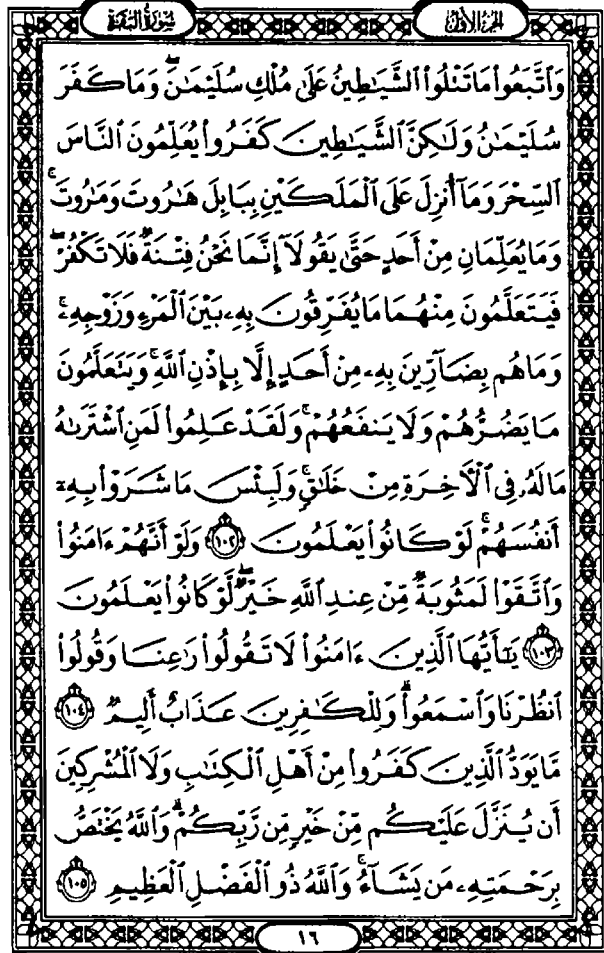 سُورَةُ البَقَرَةِ
الجُزْءُ الأَوَّلُ
وَٱتَّبَعُوا۟ مَا تَتْلُوا۟ ٱلشَّيَـٰطِينُ عَلَىٰ مُلْكِ سُلَيْمَـٰنَ ۖ وَمَا كَفَرَ
سُلَيْمَـٰنُ وَلَـٰكِنَّ ٱلشَّيَـٰطِينَ كَفَرُوا۟ يُعَلِّمُونَ ٱلنَّاسَ
ٱلسِّحْرَ وَمَآ أُنزِلَ عَلَى ٱلْمَلَكَيْنِ بِبَابِلَ هَـٰرُوتَ وَمَـٰرُوتَ ۚ
وَمَا يُعَلِّمَانِ مِنْ أَحَدٍ حَتَّىٰ يَقُولَآ إِنَّمَا نَحْنُ فِتْنَةٌ فَلَا تَكْفُرْ ۖ
فَيَتَعَلَّمُونَ مِنْهُمَا مَا يُفَرِّقُونَ بِهِۦ بَيْنَ ٱلْمَرْءِ وَزَوْجِهِۦ ۚ
وَمَا هُم بِضَآرِّينَ بِهِۦ مِنْ أَحَدٍ إِلَّا بِإِذْنِ ٱللَّهِ ۚ وَيَتَعَلَّمُونَ
مَا يَضُرُّهُمْ وَلَا يَنفَعُهُمْ ۚ وَلَقَدْ عَلِمُوا۟ لَمَنِ ٱشْتَرَىٰهُ
مَا لَهُۥ فِى ٱلْـَٔاخِرَةِ مِنْ خَلَـٰقٍ ۚ وَلَبِئْسَ مَا شَرَوْا۟ بِهِۦٓ
أَنفُسَهُمْ ۚ لَوْ كَانُوا۟ يَعْلَمُونَ ١٠٢ وَلَوْ أَنَّهُمْ ءَامَنُوا۟
وَٱتَّقَوْا۟ لَمَثُوبَةٌ مِّنْ عِندِ ٱللَّهِ خَيْرٌ ۖ لَّوْ كَانُوا۟ يَعْلَمُونَ
١٠٣ يَـٰٓأَيُّهَا ٱلَّذِينَ ءَامَنُوا۟ لَا تَقُولُوا۟ رَٰعِنَا وَقُولُوا۟
ٱنظُرْنَا وَٱسْمَعُوا۟ ۗ وَلِلْكَـٰفِرِينَ عَذَابٌ أَلِيمٌ ١٠٤
مَّا يَوَدُّ ٱلَّذِينَ كَفَرُوا۟ مِنْ أَهْلِ ٱلْكِتَـٰبِ وَلَا ٱلْمُشْرِكِينَ
أَن يُنَزَّلَ عَلَيْكُم مِّنْ خَيْرٍ مِّن رَّبِّكُمْ ۗ وَٱللَّهُ يَخْتَصُّ
بِرَحْمَتِهِۦ مَن يَشَآءُ ۚ وَٱللَّهُ ذُو ٱلْفَضْلِ ٱلْعَظِيمِ ١٠٥
١٦